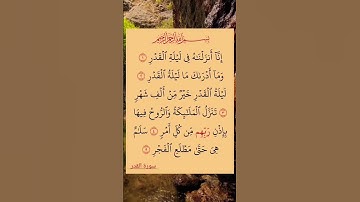 بسم الله الرحمن الرحيم
إِنَّآ أَنزَلْنَٰهُ فِى لَيْلَةِ ٱلْقَدْرِ ۝١
وَمَآ أَدْرَىٰكَ مَا لَيْلَةُ ٱلْقَدْرِ ۝٢
لَيْلَةُ ٱلْقَدْرِ خَيْرٌ مِّنْ أَلْفِ شَهْرٍ
۝٣ تَنَزَّلُ ٱلْمَلَٰٓئِكَةُ وَٱلرُّوحُ فِيهَا
بِإِذْنِ رَبِّهِم مِّن كُلِّ أَمْرٍ ۝٤ سَلَٰمٌ
هِىَ حَتَّىٰ مَطْلَعِ ٱلْفَجْرِ ۝٥
سورة القدر